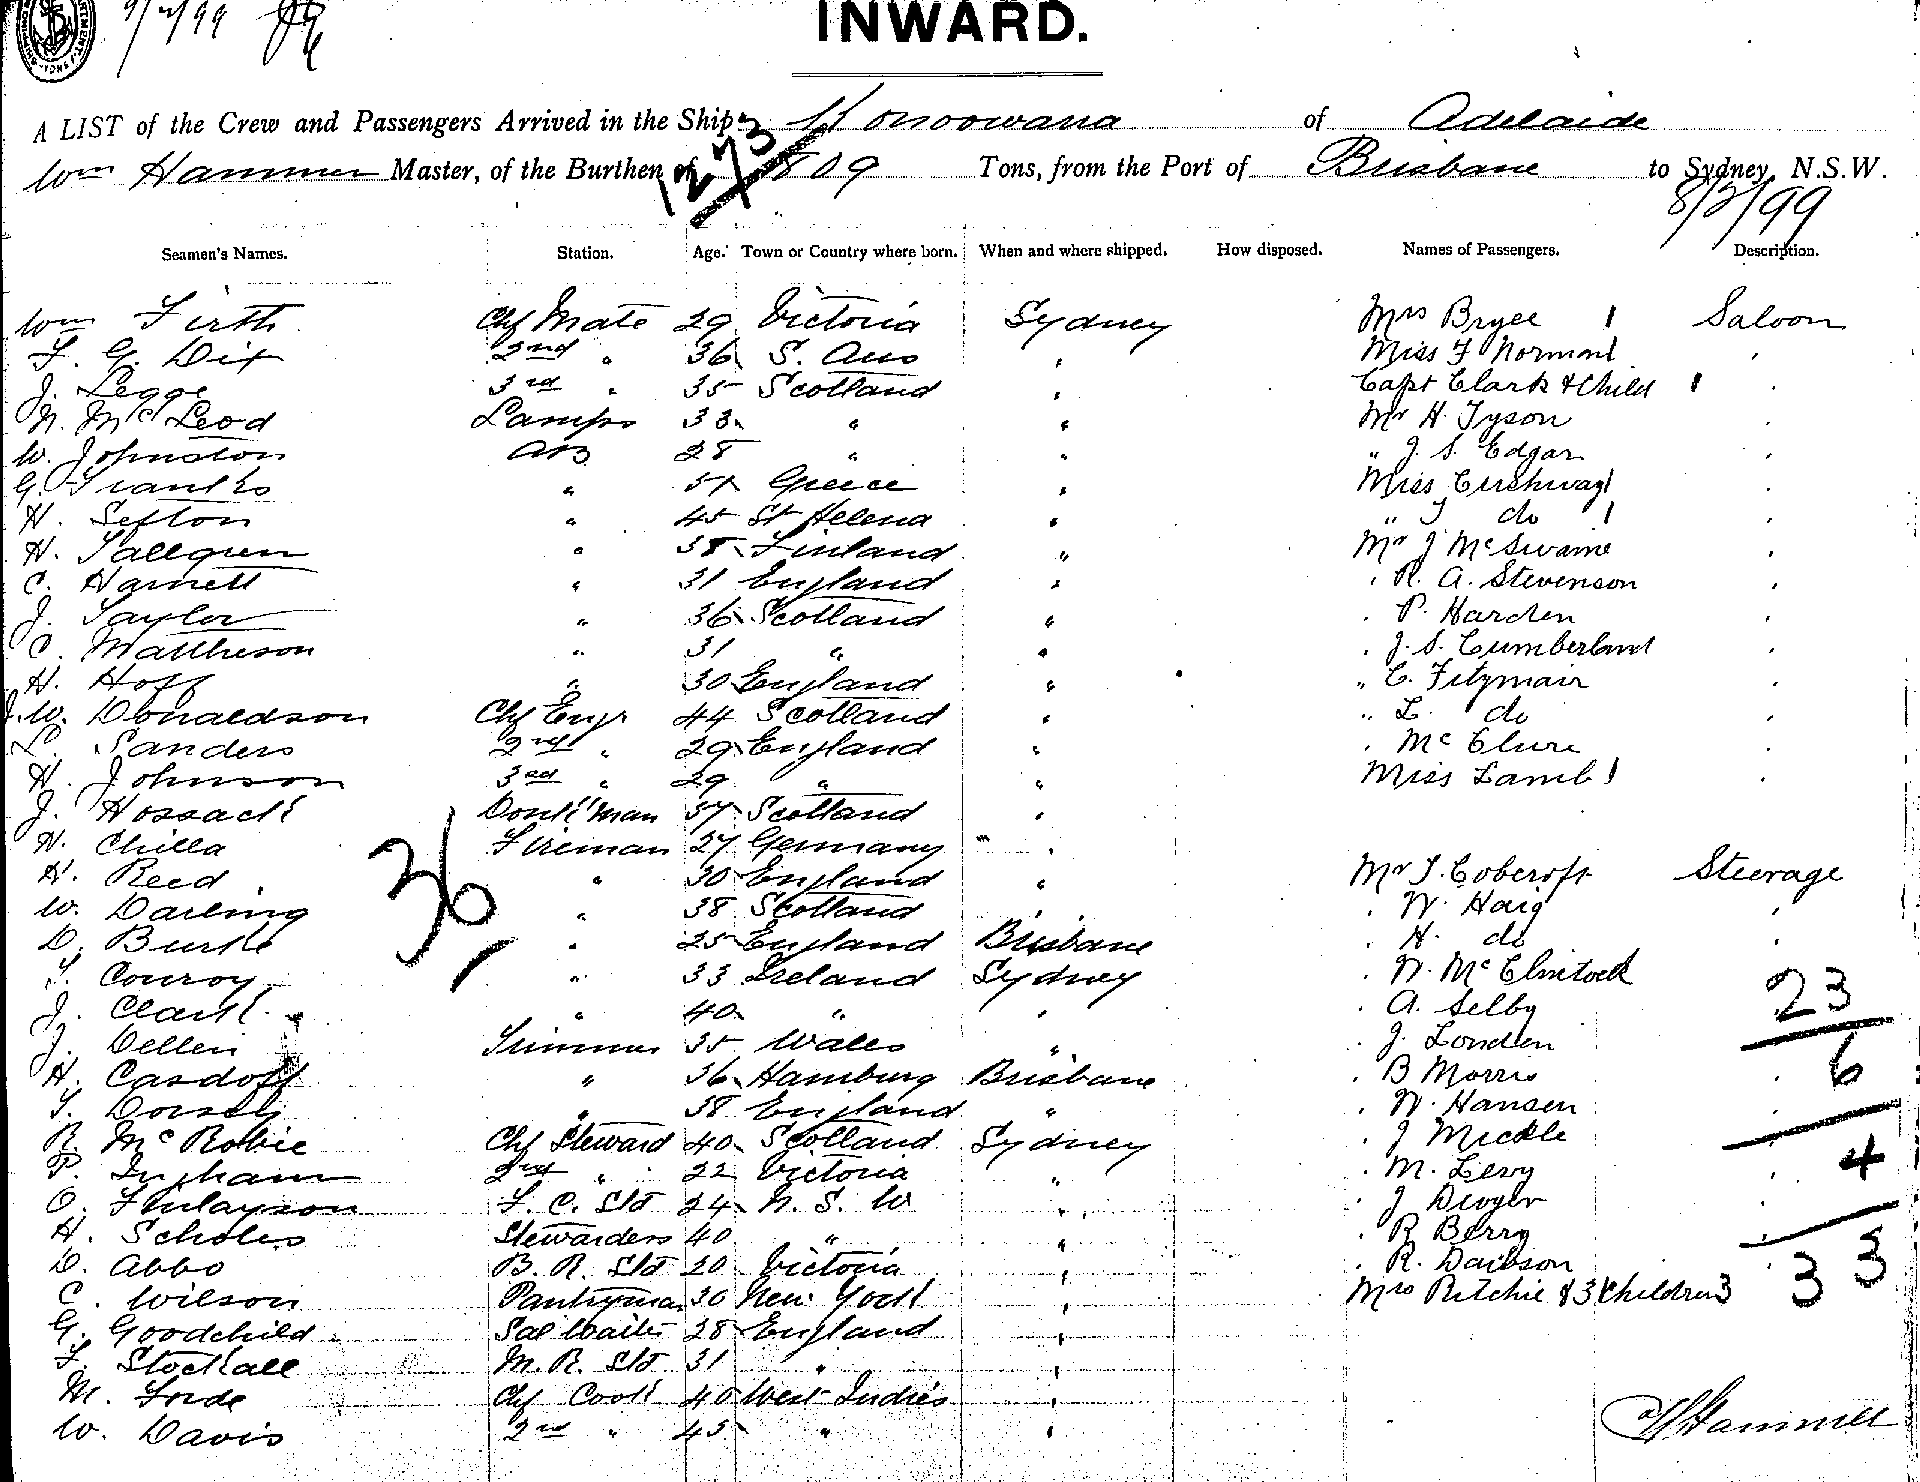 9/2/99
INWARD.
A LIST of the Crew and Passengers Arrived in the Ship Konoowana of Adelaide
1273
Wm Hammer Master, of the Burthen of 1809 Tons, from the Port of Brisbane to Sydney, N.S.W.
8/2/99
Seamen's Names. Station. Age. Town or Country where born. When and where shipped. How disposed. Names of Passengers. Description.
Wm Firth Chf Mate 29 Victoria Sydney Mrs Bryce 1 Saloon
F. G. Dix 2nd " 36 S. Aus " Miss F Norman 1 "
J. Legge 3rd " 35 Scotland " Capt Clark & Child 1 "
N. McLeod Lamps 33 " " Mr H. Tyson "
W. Johnston AB 28 " " " J. S. Edgar "
G. " Greece " Miss 1 "
H. Sefton " 45 St Helena " " do 1 "
H. Sallgren " 38 Finland " Mr J McSwaine "
C. Harnett " 31 England " " R. A. Stevenson "
J. Taylor " 36 Scotland " " P. Harden "
C. Mattheson " 31 " " " J. S. Cumberland "
H. Hoff " 30 England " " C. Fitzmair "
J. W. Donaldson Chf Engr 44 Scotland " " L. do "
L. Sanders 2nd " 29 England " " McClure "
H. Johnson 3rd " 29 " " Miss Lamb 1 "
J. Hossack Donk'man 37 Scotland "
H. Chilla Fireman 27 Germany " "
H. Reed " 30 England " Mr T. Cobcroft Steerage
36
W. Darling " 38 Scotland " " W. Haig "
D. Burke " 25 England Brisbane " H. do "
T. Conroy " 33 Ireland Sydney " W. McClintock
J. Clark " 40 " " " A. Selby 23
J. Dellen Trimmer 35 Wales " " J. London
H. Casdoff " 36 Hamburg Brisbane " B Morris " 6
T. Dorsch " 38 England " " W. Hansen "
R. McRobie Chf Steward 40 Scotland Sydney " J Mickle
P. Ingham 2nd " 22 Victoria " " M. Levy " 4
O. Finlayson F. C. Std 24 N. S. W " " J Dwyer
H. Scholes Stewardess 40 " " " R Berry
D. Abbo B. R. Std 20 Victoria " " R. Davbson " 33
C. Wilson Pantryman 30 New York " Mrs Ritchie & 3 Children 3
G. Goodchild Sal Waiter 28 England "
F. Stockall M. R. Std 31 " "
M. Forde Chf Cook 40 West Indies "
W. Davis 2nd " 45 " "
W Hammer